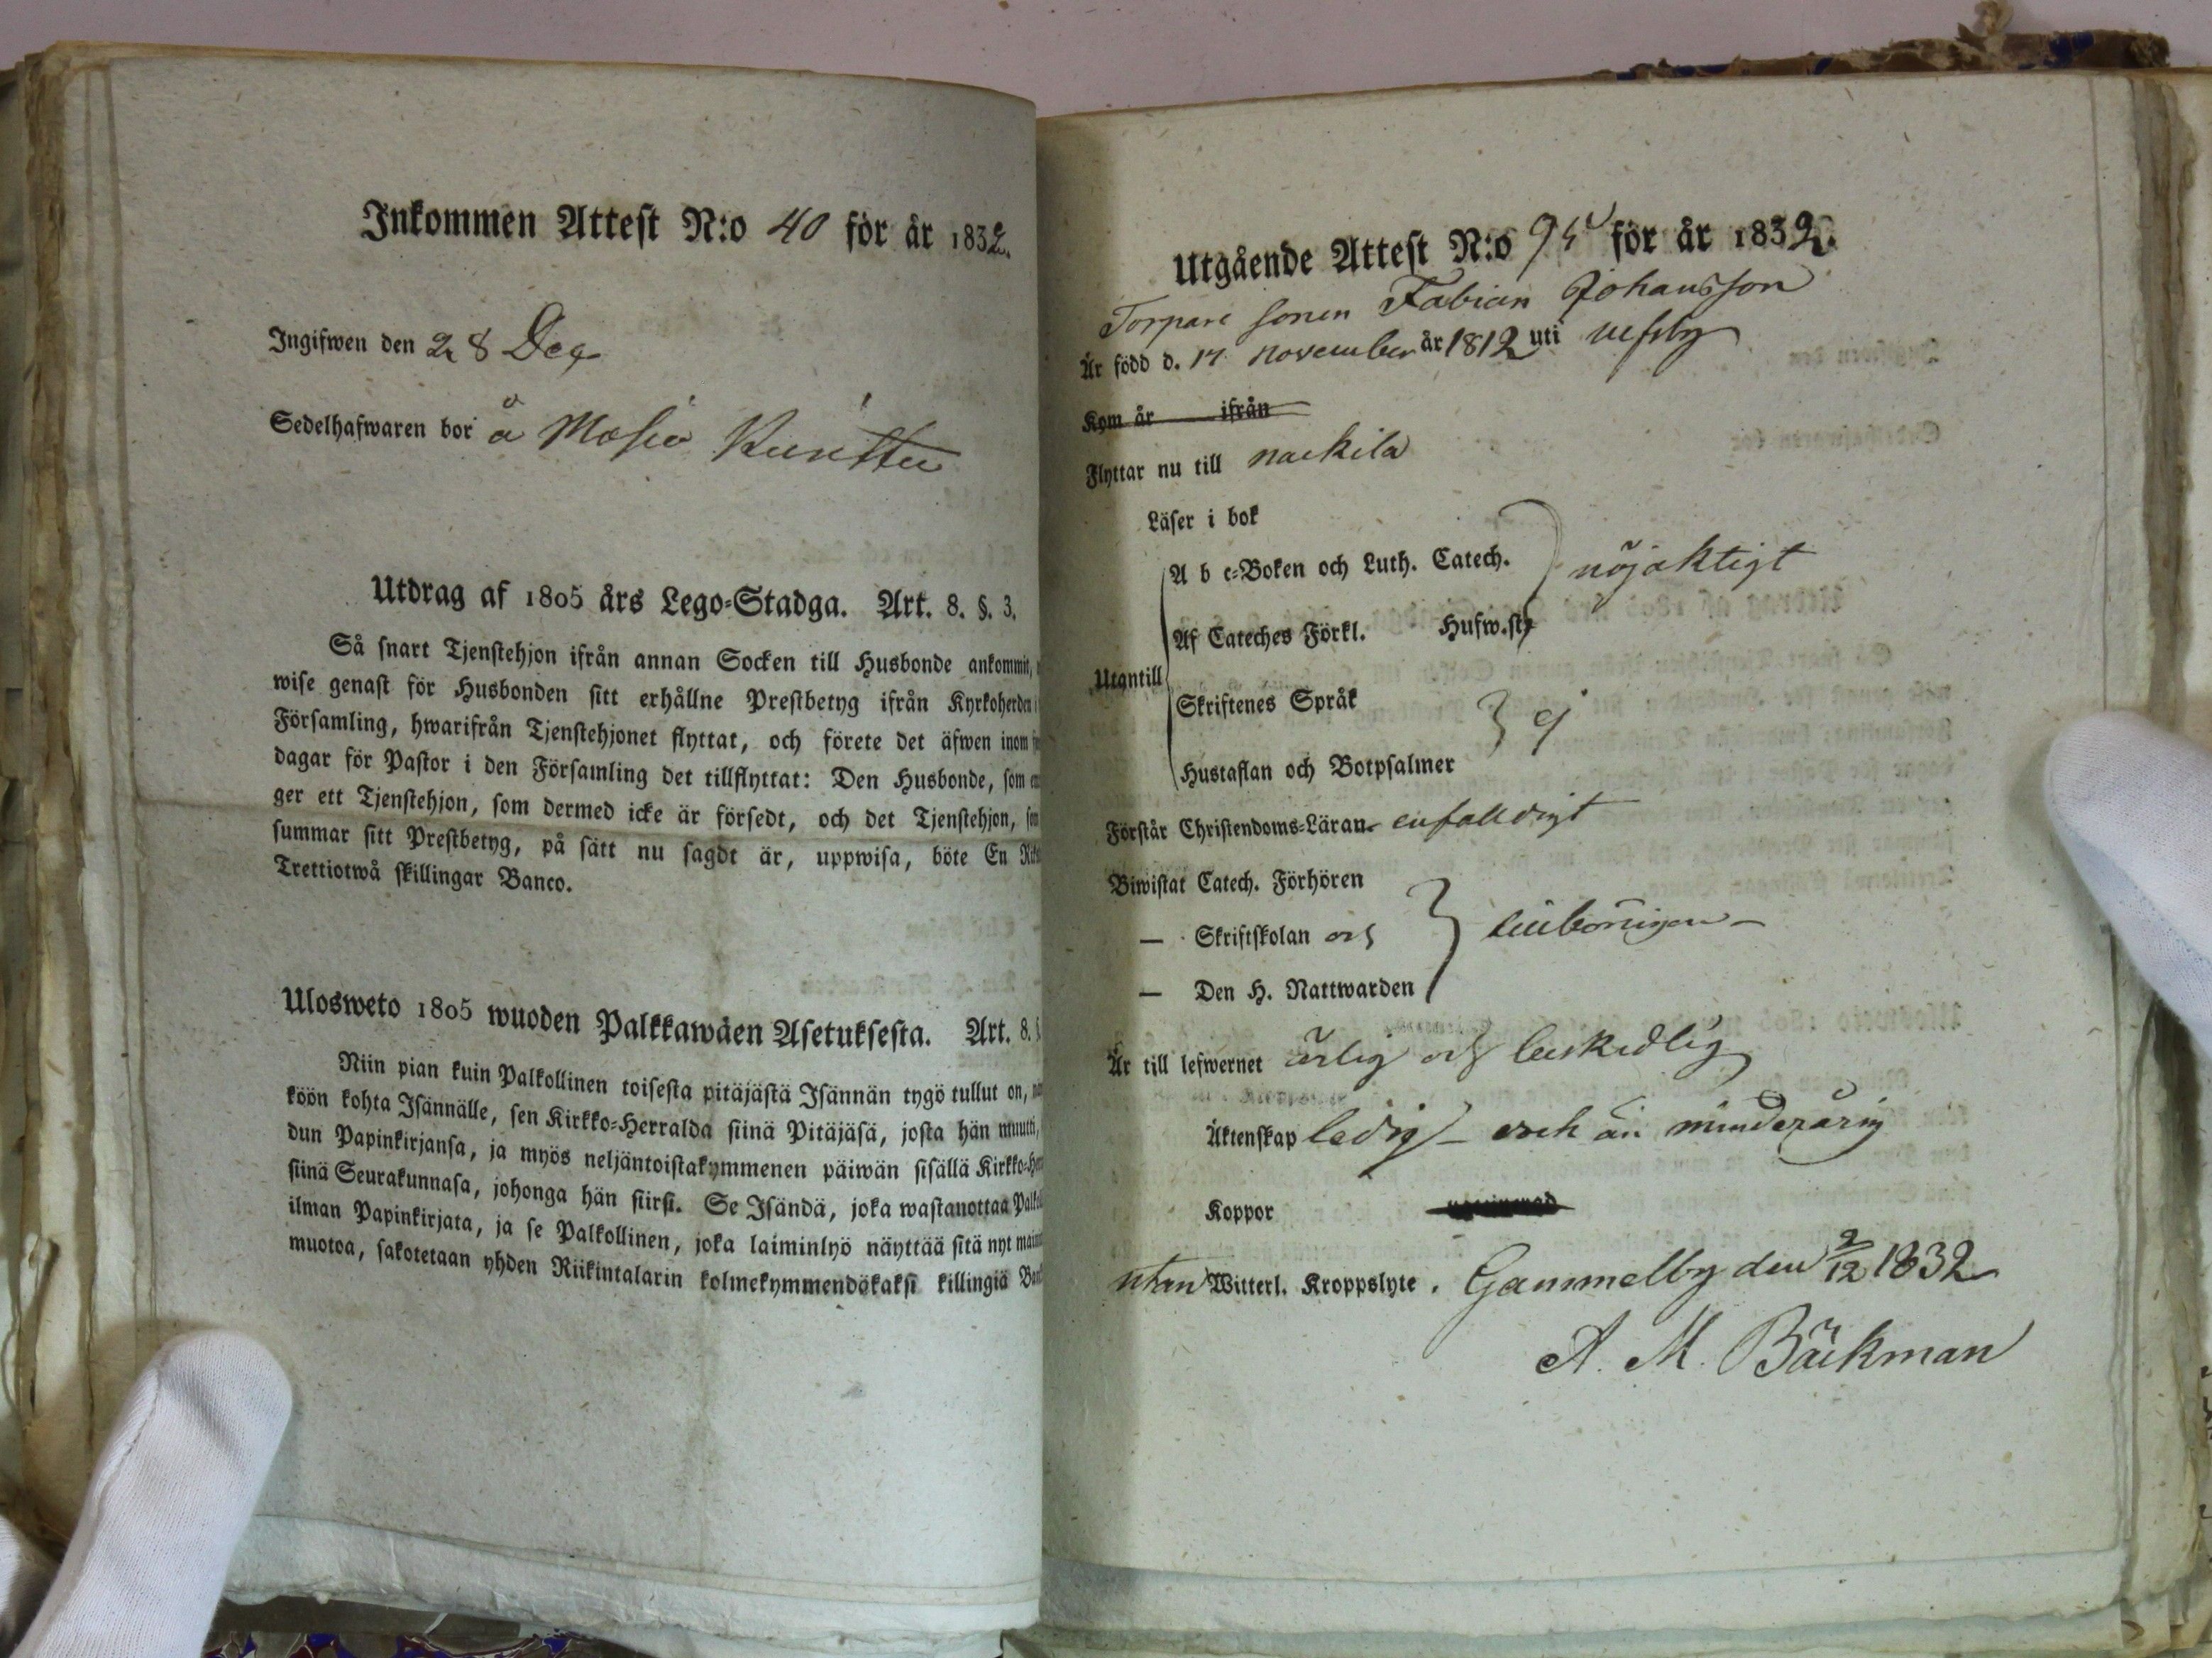 Inkommen Attest N:o 40 för år 1832.
Ingifwen den 28 Dec
Sedelhafwaren bor å
Utdrag af 1805 års Lego-Stadga. Art. 8. §. 3.
Så snart Tjenstehjon ifrån annan Socken till Husbonde ankommit,
wise genast för Husbonden sitt erhållne Prestbetyg ifrån Kyrkoherden
Församling, hwarifrån Tjenstehjonet flyttat, och förete det äfwen inom
dagar för Pastor i den Församling det tillflyttat: Den Husbonde, som
ger ett Tjenstehjon, som dermed icke är försedt, och det Tjenstehjon,
summar sitt Prestbetyg, på sätt nu sagdt är, uppwisa, böte En
Trettiotwå skillingar Banco.
Ulosweto 1805 wuoden Palkkawäen Asetuksesta. Art. 8.
Niin pian kuin Palkollinen toisesta pitäjästä Isännän tygö tullut on,
köön kohta Isännälle, sen Kirkko-Herralda siinä Pitäjäsä, josta hän muutti,
dun Papinkirjansa, ja myös neljäntoistakymmenen päiwän sisällä Kirkko-
siinä Seurakunnasa, johonga hän siirsi. Se Isändä, joka wastanottaa
ilman Papinkirjata, ja se Palkollinen, joka laiminlyö näyttää sitä nyt
muotoa, sakotetaan yhden Riikintalarin kolmekymmendökaksi killingiä
Utgående Attest N:o för år 1832.
Torpare sonen Fabian Johansson
Är född d. 17 november år 1812 uti Ulfsby
Kom år ifrån
Flyttar nu till nackila
Läser i bok
A b c-Boken och Luth. Catech. nöjaktigt
Af Cateches Förkl. Hufw.st.
Utantill
Skriftenes Språk
ej
Hustaflan och Botpsalmer
Förstår Christendoms-Läran enfalldigt
Biwistat Catech. Förhören
— Skriftskolan och
— Den H. Nattwarden
Är till lefwernet ärlig och beskedlig
Äktenskap ledig – och än minderårig
Koppor
utan Witterl. Kroppslyte. Gammelby den 2/12 1832
A. M. Bäckman